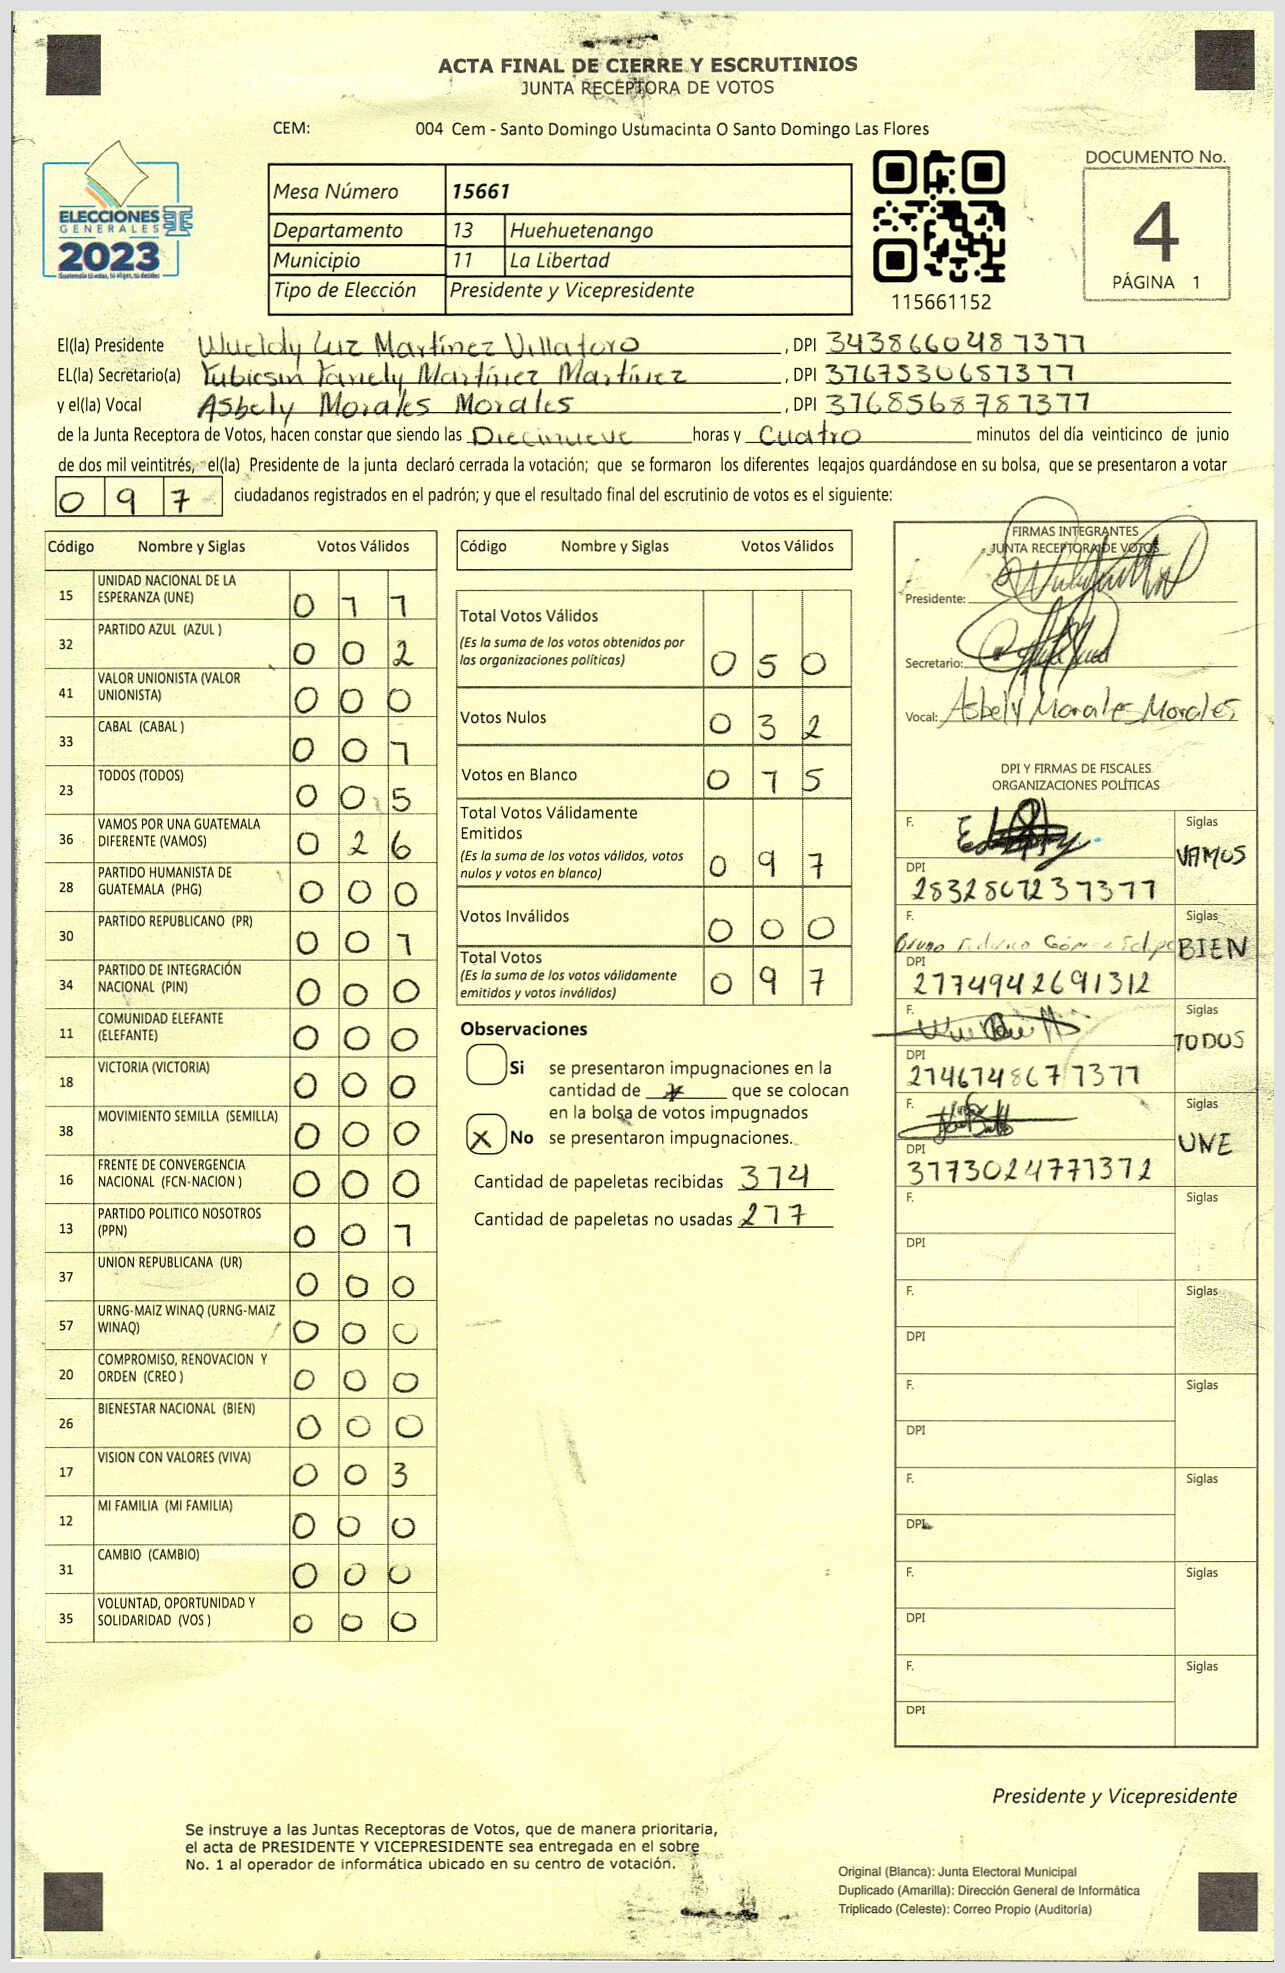 ACTA FINAL DE CIERRE Y ESCRUTINIOS
JUNTA RECEPTORA DE VOTOS
CEM: 004 Cem - Santo Domingo Usumacinta O Santo Domingo Las Flores
ELECCIONES
GENERALES
2023
Mesa Número 15661
Departamento 13 Huehuetenango
Municipio 11 La Libertad
Tipo de Elección Presidente y Vicepresidente
115661152
DOCUMENTO No.
4
PÁGINA 1
El(la) Presidente Wueldy Luz Martínez Villatoro , DPI 3438660481377
EL(la) Secretario(a) Yubicsin Yanely Martínez Martínez , DPI 3767530651377
y el(la) Vocal Asbely Morales Morales , DPI 3768568787377
de la Junta Receptora de Votos, hacen constar que siendo las Diecinueve horas y Cuatro minutos del día veinticinco de junio
de dos mil veintitrés, el(la) Presidente de la junta declaró cerrada la votación; que se formaron los diferentes legajos guardándose en su bolsa, que se presentaron a votar
097 ciudadanos registrados en el padrón; y que el resultado final del escrutinio de votos es el siguiente:
Código Nombre y Siglas Votos Válidos
15 UNIDAD NACIONAL DE LA
ESPERANZA (UNE) 0 1 1
32 PARTIDO AZUL (AZUL ) 0 0 2
41 VALOR UNIONISTA (VALOR
UNIONISTA) 0 0 0
33 CABAL (CABAL ) 0 0 1
23 TODOS (TODOS) 0 0 5
36 VAMOS POR UNA GUATEMALA
DIFERENTE (VAMOS) 0 2 6
28 PARTIDO HUMANISTA DE
GUATEMALA (PHG) 0 0 0
30 PARTIDO REPUBLICANO (PR) 0 0 1
34 PARTIDO DE INTEGRACIÓN
NACIONAL (PIN) 0 0 0
11 COMUNIDAD ELEFANTE
(ELEFANTE) 0 0 0
18 VICTORIA (VICTORIA) 0 0 0
38 MOVIMIENTO SEMILLA (SEMILLA) 0 0 0
16 FRENTE DE CONVERGENCIA
NACIONAL (FCN-NACION ) 0 0 0
13 PARTIDO POLITICO NOSOTROS
(PPN) 0 0 1
37 UNION REPUBLICANA (UR) 0 0 0
57 URNG-MAIZ WINAQ (URNG-MAIZ
WINAQ) 0 0 0
20 COMPROMISO, RENOVACION Y
ORDEN (CREO ) 0 0 0
26 BIENESTAR NACIONAL (BIEN) 0 0 0
17 VISION CON VALORES (VIVA) 0 0 3
12 MI FAMILIA (MI FAMILIA) 0 0 0
31 CAMBIO (CAMBIO) 0 0 0
35 VOLUNTAD, OPORTUNIDAD Y
SOLIDARIDAD (VOS ) 0 0 0
Código Nombre y Siglas Votos Válidos
Total Votos Válidos
(Es la suma de los votos obtenidos por
las organizaciones políticas) 0 5 0
Votos Nulos 0 3 2
Votos en Blanco 0 1 5
Total Votos Válidamente
Emitidos
(Es la suma de los votos válidos, votos
nulos y votos en blanco) 0 9 7
Votos Inválidos 0 0 0
Total Votos
(Es la suma de los votos válidamente
emitidos y votos inválidos) 0 9 7
Observaciones
Si se presentaron impugnaciones en la
cantidad de que se colocan
en la bolsa de votos impugnados
X No se presentaron impugnaciones.
Cantidad de papeletas recibidas 374
Cantidad de papeletas no usadas 277
FIRMAS INTEGRANTES
JUNTA RECEPTORA DE VOTOS
Presidente:
Secretario:
Vocal: Asbely Morales Morales
DPI Y FIRMAS DE FISCALES
ORGANIZACIONES POLÍTICAS
F. Siglas
VAMOS
DPI
2832867237377
F. Siglas
Bruno Federico Gómez Felipe BIEN
DPI
2774942691312
F. Siglas
TODOS
DPI
2746748671377
F. Siglas
UNE
DPI
3773024771372
F. Siglas
DPI
F. Siglas
DPI
F. Siglas
DPI
F. Siglas
DPI
F. Siglas
DPI
F. Siglas
DPI
Presidente y Vicepresidente
Se instruye a las Juntas Receptoras de Votos, que de manera prioritaria,
el acta de PRESIDENTE Y VICEPRESIDENTE sea entregada en el sobre
No. 1 al operador de informática ubicado en su centro de votación.
Original (Blanca): Junta Electoral Municipal
Duplicado (Amarilla): Dirección General de Informática
Triplicado (Celeste): Correo Propio (Auditoría)